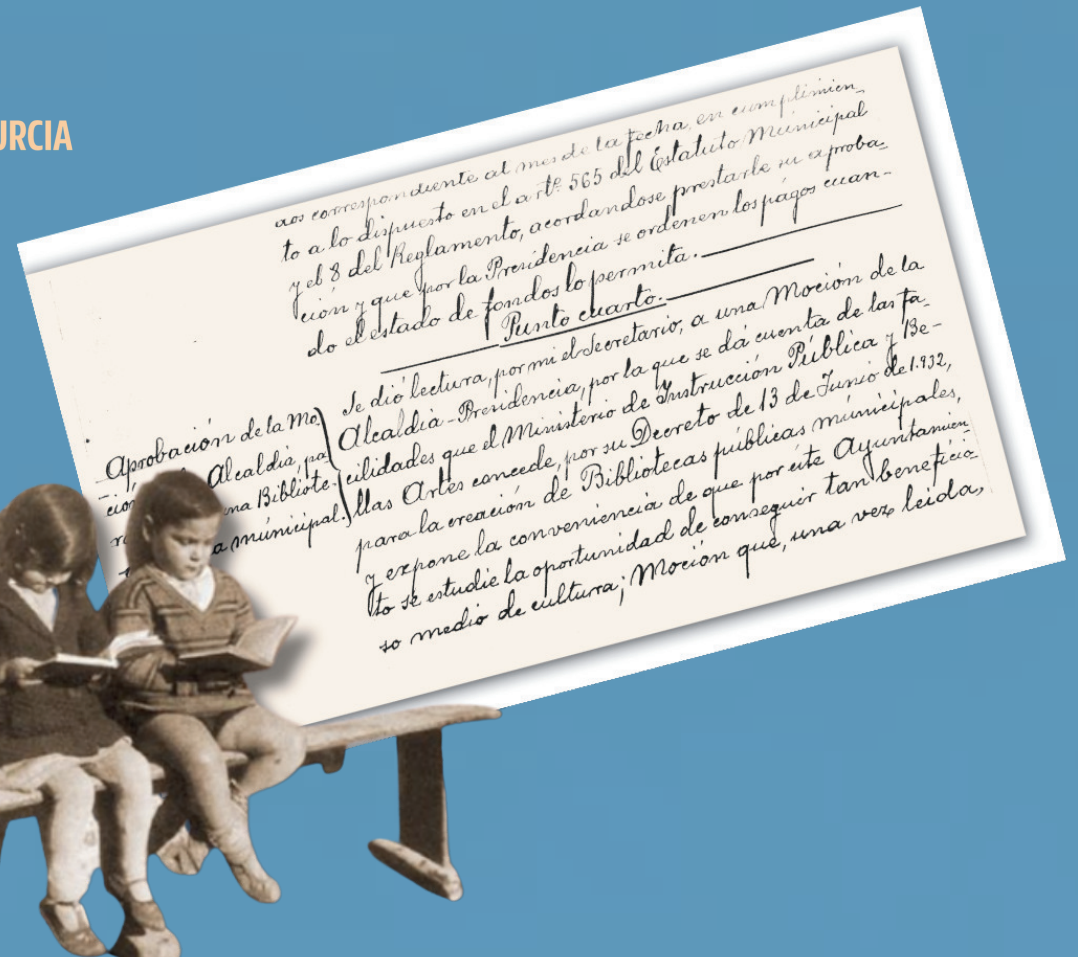 URCIA
dos correspondiente al mes de la fecha, en cumplimien
to a lo dispuesto en el artº 565 del Estatuto Municipal
y el 8 del Reglamento, acordandose prestarle su aproba
ción y que por la Presidencia se ordenen los pagos cuan-
do el estado de fondos lo permita.
Punto cuarto.
Aprobación de la Mo
Alcaldia, pa
una Bibliote
municipal.
Se dió lectura, por mi el Secretario, a una Moción de la
Alcaldia-Presidencia, por la que se dá cuenta de las fa-
cilidades que el Ministerio de Instrucción Pública y Be-
llas Artes concede, por su Decreto de 13 de Junio de 1.932,
para la creación de Bibliotecas públicas múnicipales,
y expone la conveniencia de que por éste Ayuntamien
to se estudie la oportunidad de conseguir tan beneficio
so medio de cultura; Moción que, una vez leida,